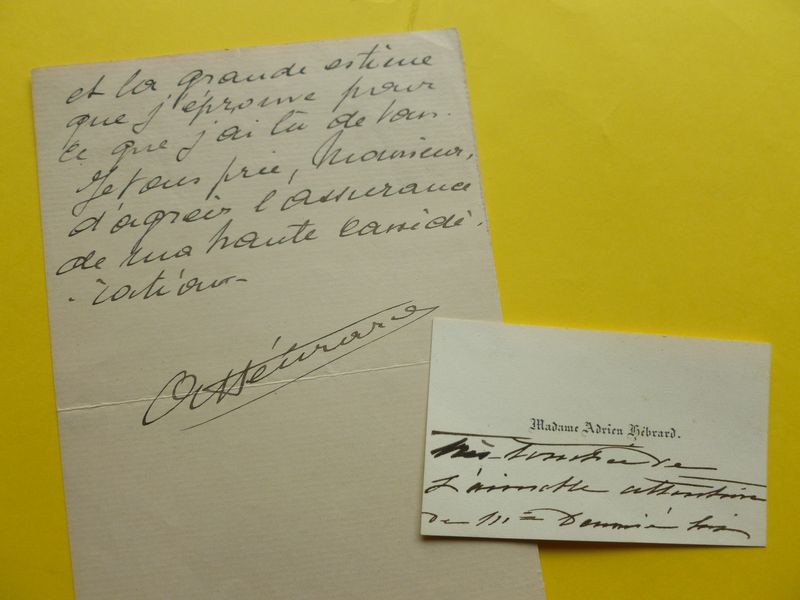 et la grande estime
que j'éprouve pour
ce que j'ai lu de vous.
Je vous prie, Monsieur,
d'agréer l'assurance
de ma haute considé-
-ration-
AHébrard
Madame Adrien Hébrard.
très touchée de
l'aimable attention
de Mme